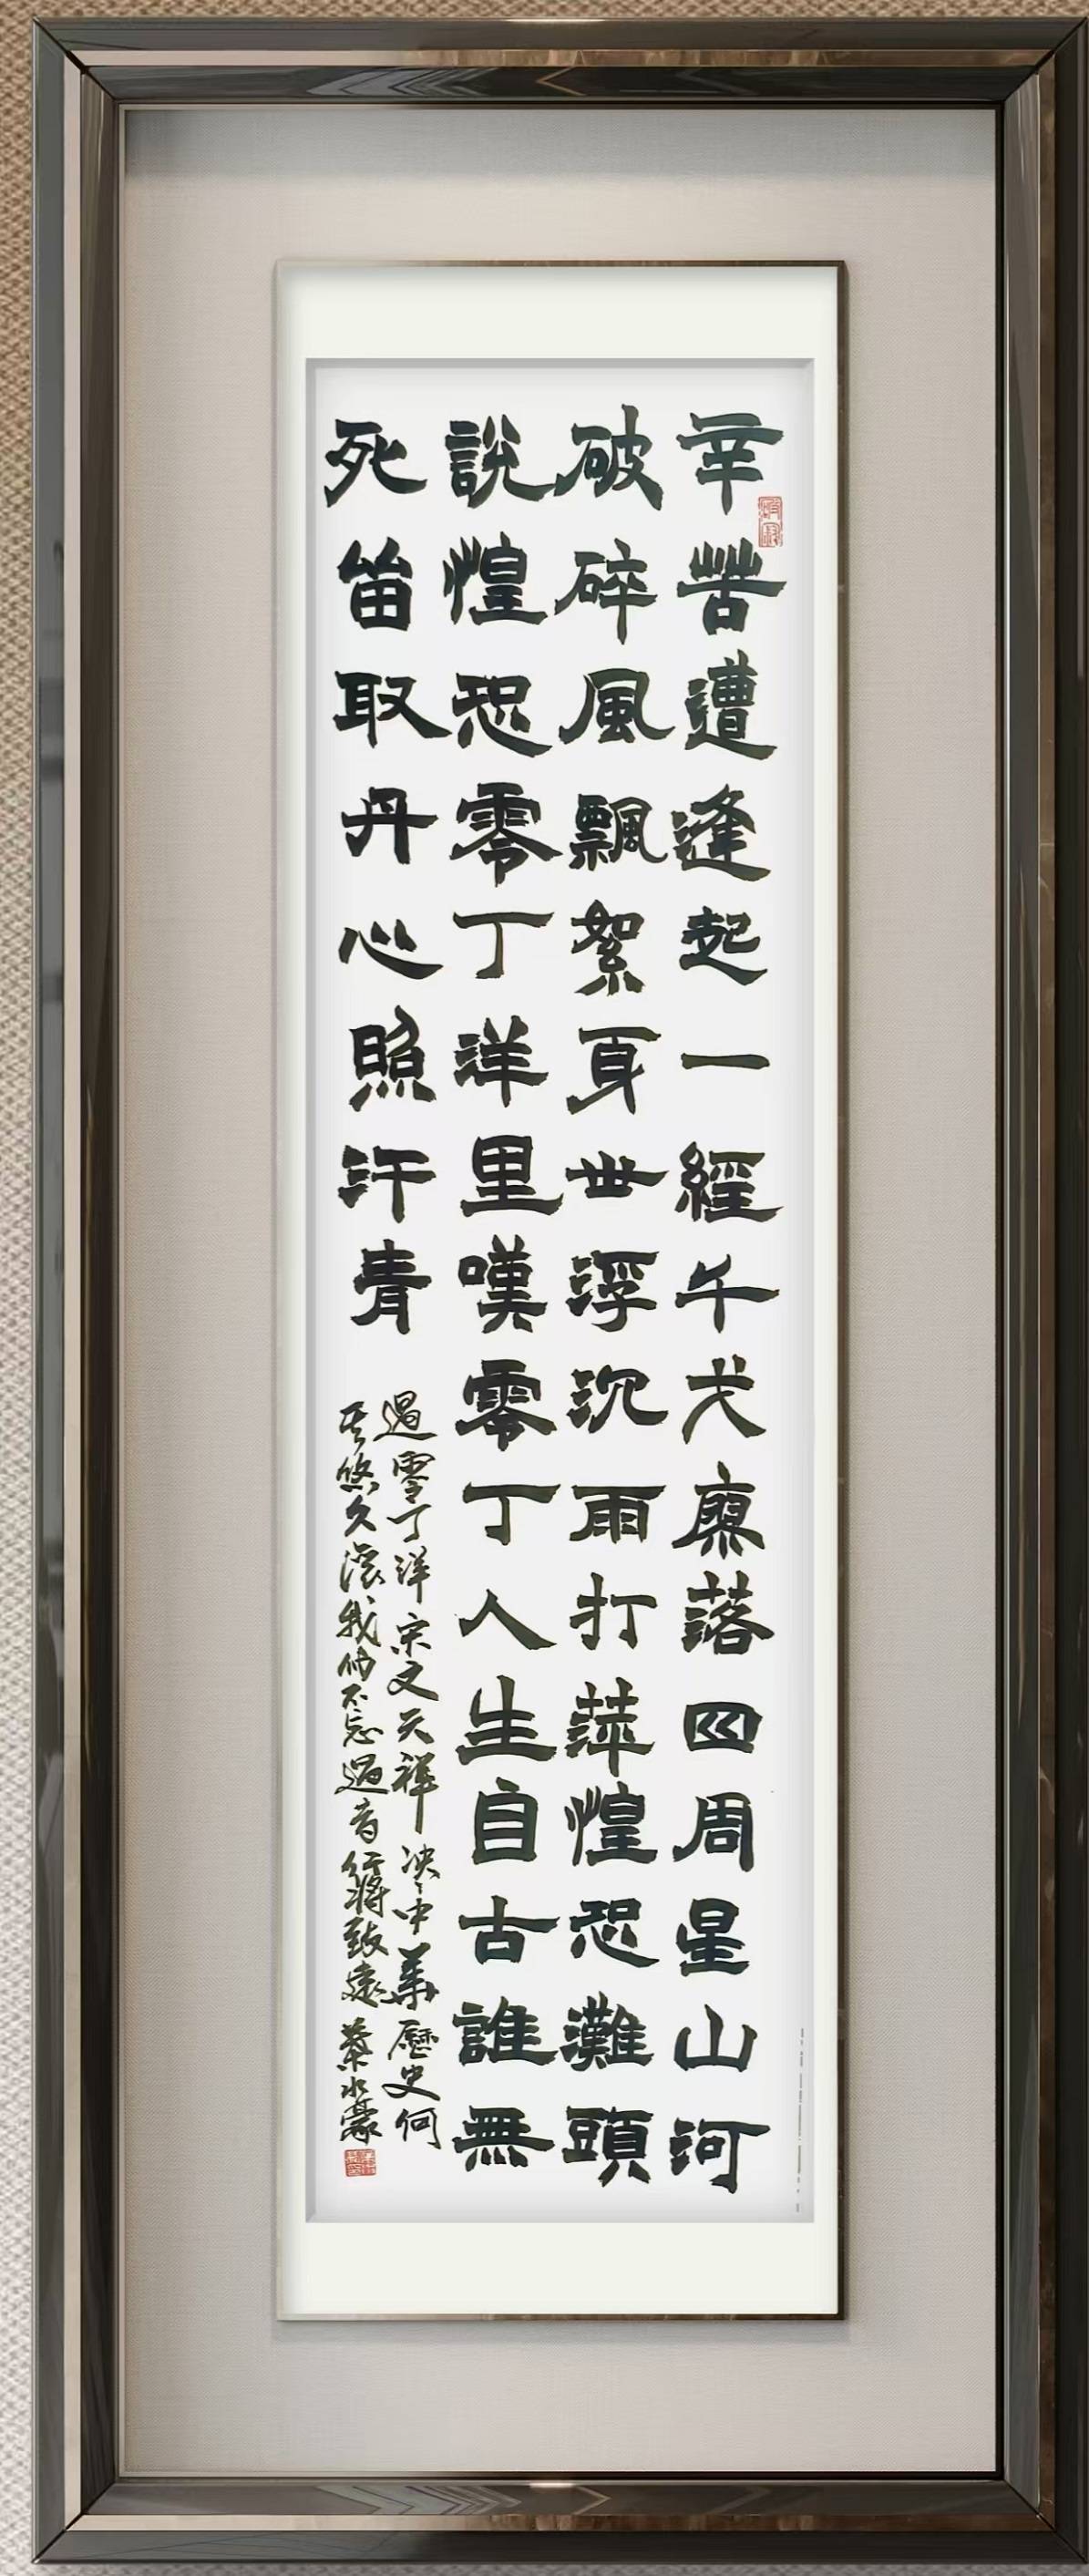 辛苦遭逢起一經千戈寥落四周星山河
破碎風飄絮身世浮沉雨打萍惶恐灘頭
說惶恐零丁洋里嘆零丁人生自古誰無
死留取丹心照汗青
過零丁洋宋文天祥泱泱中華歷史何
其悠久我們不忘過行將致遠蔡水豪